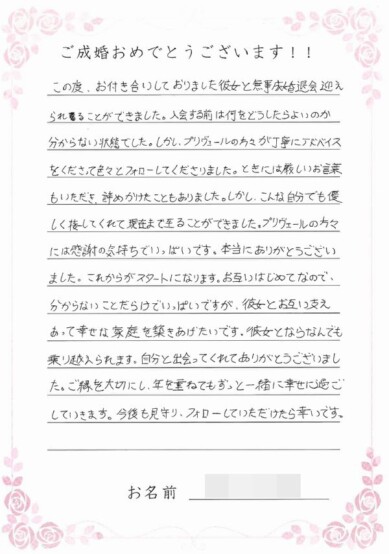 ご成婚おめでとうございます!!
この度、お付き合いしておりました彼女と無事成婚退会迎え
られることができました。入会する前は何をどうしたらよいのか
分からない状態でした。しかし、プリヴェールの方々が丁寧にアドバイス
をくださって色々とフォローしてくださりました。ときには厳しいお言葉
もいただき、諦めかけたこともありました。しかし、こんな自分でも優
しく接してくれて現在まで至ることができました。プリヴェールの方々
には感謝の気持ちでいっぱいです。本当にありがとうござい
ました。これからがスタートになります。お互いはじめてなので、
分からないことだらけでいっぱいですが、彼女とお互い支え
あって幸せな家庭を築きあげたいです。彼女とならなんでも
乗り越えられます。自分と出会ってくれてありがとうございまし
た。ご縁を大切にし、年を重ねてもずっと一緒に幸せに過ご
していきます。今後も見守り、フォローしていただけたら幸いです。
お名前